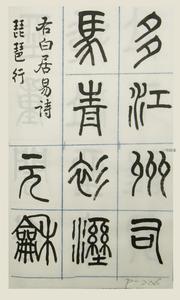 多江州司
馬青衫溼
右白居易詩
琵琶行
元龢